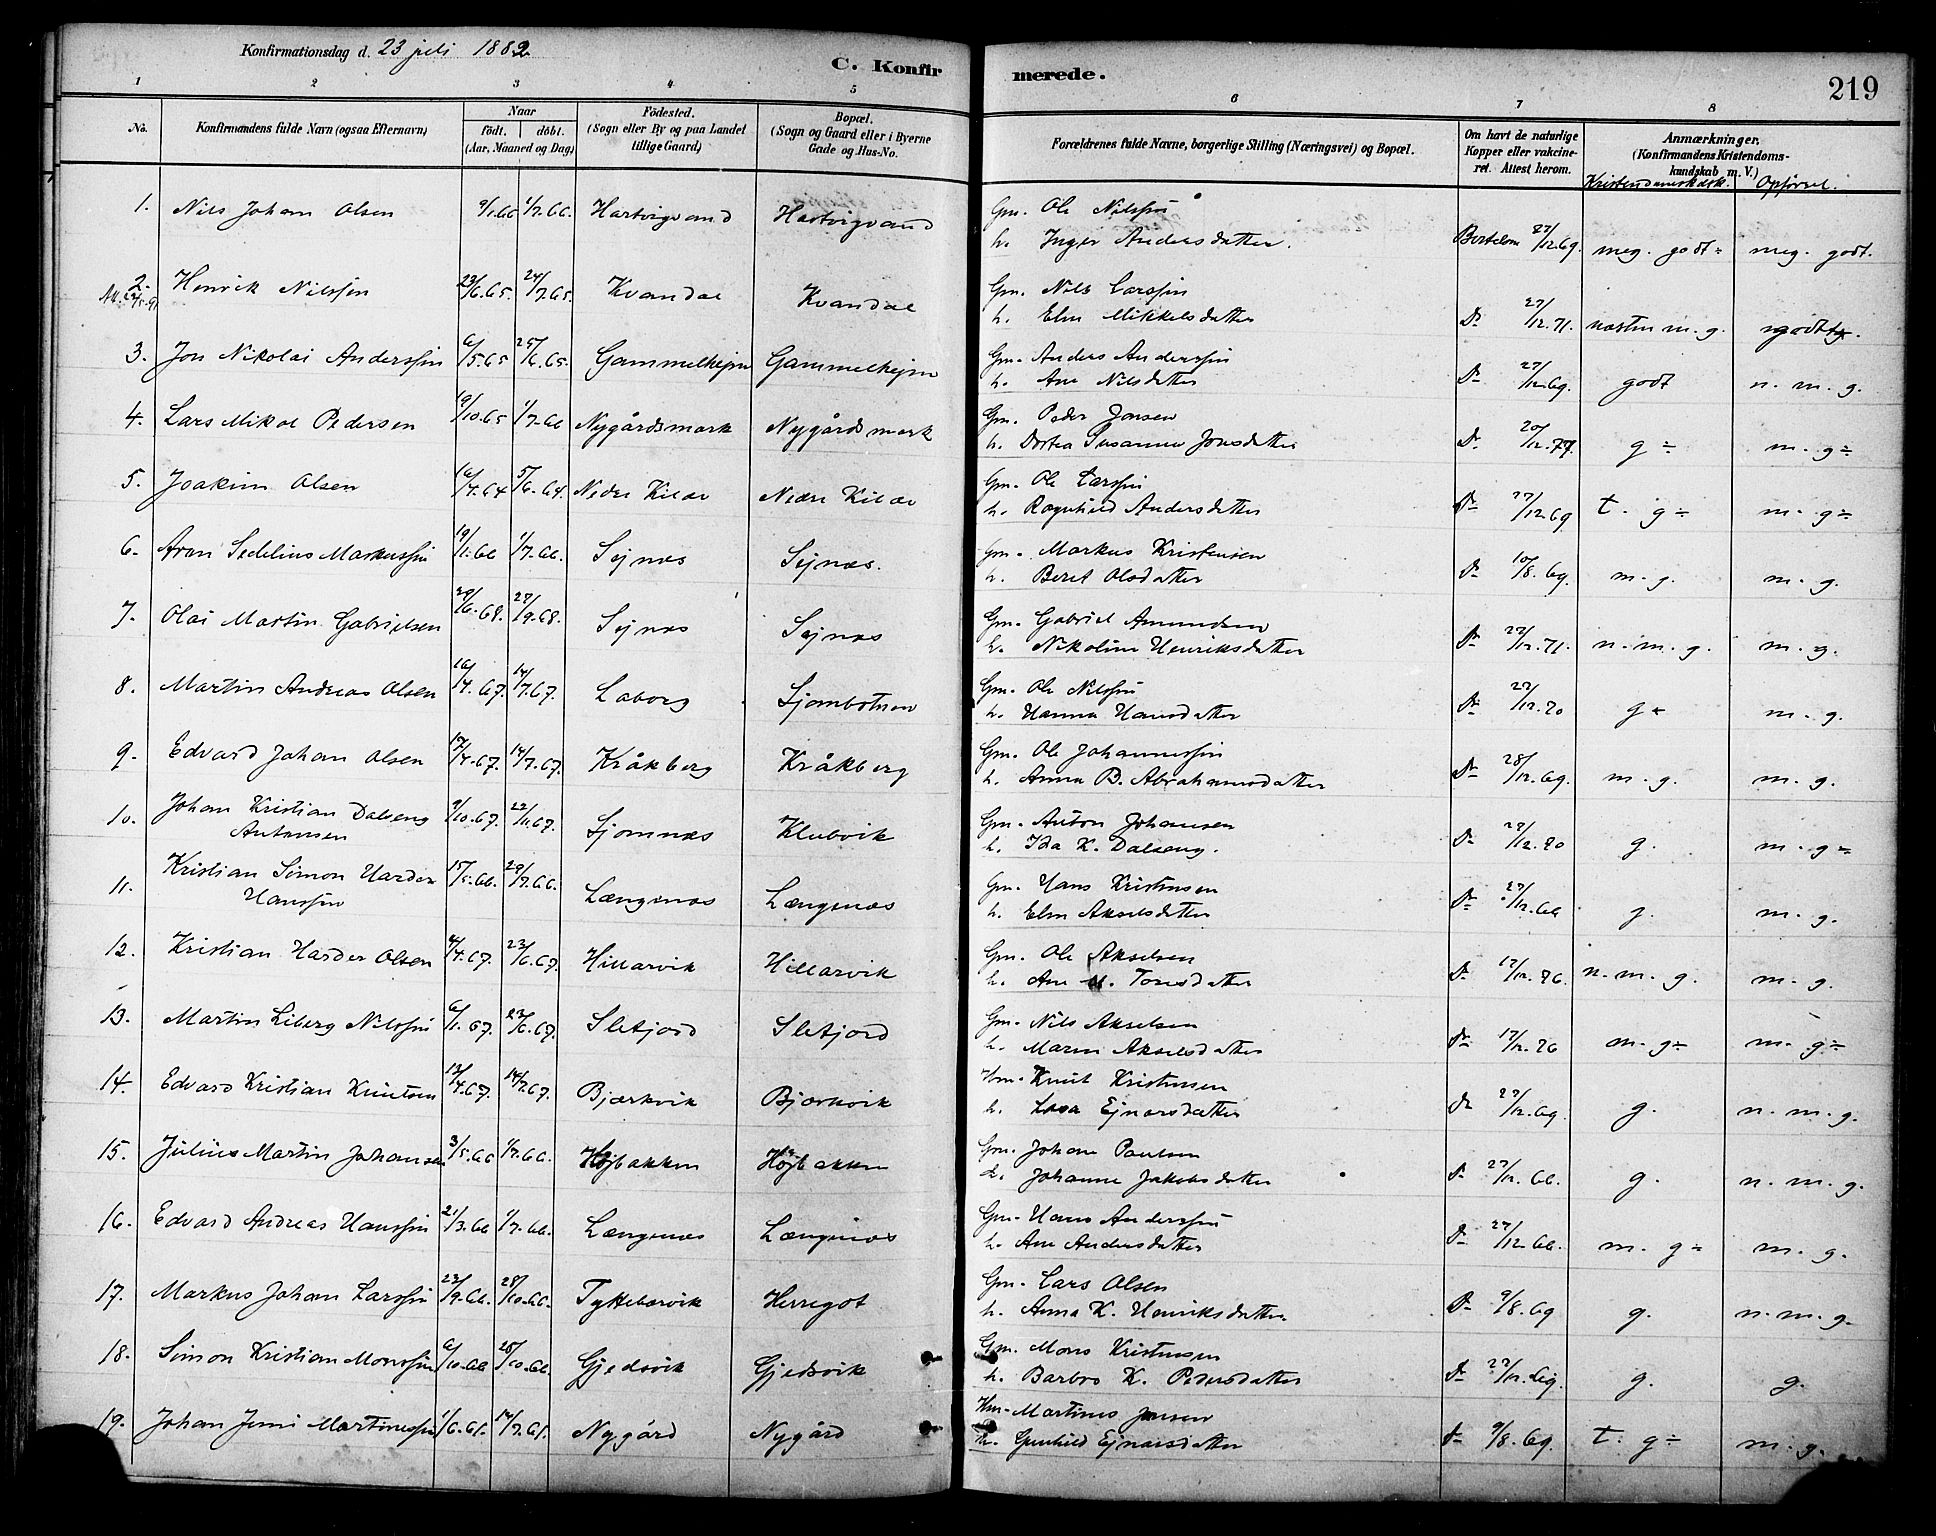 Konfirmationsdag d. 23 juli 1882
C. Konfirmerede.
219
1 2 3 4 5 6 7 8
No.
Konfirmandens fulde Navn (ogsaa Efternavn)
Naar
födt. döbt.
(Aar, Maaned og Dag)
Födested.
(Sogn eller By og paa Landet
tillige Gaard)
Bopæl.
(Sogn og Gaard eller i Byerne
Gade og Hus-No.
Forældrenes fulde Navne, borgerlige Stilling (Næringsvei) og Bopæl.
Om havt de naturlige
Kopper eller vakcine-
ret. Attest herom.
Anmærkninger.
(Konfirmandens Kristendoms-
kundskab m. V.)
Kristendomskdsk. Opförsel.
1. Nils Johan Olsen 9/1.66 1/7.66. Hartvigvand Hartvigvand Gm. Ole Nilssen
h. Inger Andersdatter. Bertelsen 27/12.69. meg. godt÷ meg. godt.
2. Henrik Nilssen 23/6.65. 24/7.65. Kvandal Kvandal Gm. Nils Larssen
h. Elen Mikkelsdatter Do 27/12.71. næsten m. g.
3. Jon Nikolai Anderssen 6/5.65 25/6.65. Gammelhejm Gammelhejm Gm. Anders Anderssen
h. Ane Nilsdatter Do 27/12.69. godt n. m. g.
4. Lars Mikal Pedersen 9/10.65 1/7.66 Nygårdsmark Nygårdsmark Gm. Peder Jonsen
h. Dortea Susanna Jonsdatter Do 20/12.77. g÷ m. g÷
5. Joakim Olsen 16/4.64 5/6.64. Nedre Kilde Nedre Kilde Gm. Ole Larssen
h. Ragnhild Andersdatter Do 27/12.69 t. g÷ m. g÷
6. Aron Sedelius Markussen 19/1.66 1/7.66. Sejnæs Sejnæs. Gm. Markus Kristensen
h. Beret Olsdatter Do 10/8.69. m. g. m. g.
7. Olai Martin Gabrielsen 29/6.68. 27/9.68. Sejnæs Sejnæs Gm. Gabriel Amundsen
h. Nikoline Henriksdatter Do 27/12.71. n. m. g. m. g.
8. Martin Andreas Olsen 16/4.67. 14/7.67. Laborg Sjombotnen Gm. Ole Nilssen
h. Hanna Hansdatter Do 27/12.70 g÷ m. g.
9. Edvard Johan Olsen 17/4.67. 14/7.67. Kråkberg Kråkberg Gm. Ole Johannessen
h. Anna B. Abrahamsdatter Do 28/12.69. m. g. m. g.
10. Johan Kristian Dalseng
Antonsen 9/10.67. 22/11.67. Sjomnæs Klubvik Gm. Anton Johansen
h. Ida K. Dalseng. Do 27/12.70 g. m. g÷
11. Kristian Simon Harder
Hanssen 15/5.66. 29/7.66. Længenæs Længenæs Gm. Hans Kristensen
h. Elen Akselsdatter Do 27/12.66 g. m. g.
12. Kristian Harder Olsen 4/4.67. 23/6.67. Hillarvik Hillarvik Gm. Ole Akselsen
h. Ane M. Toresdatter Do 17/12.76. n. m. g. m. g.
13. Martin Liberg Nilssen 6/1.67. 23/6.67. Sletjord Sletjord Gm. Nils Akselsen
h. Maren Akselsdatter Do 17/12.76 m. g÷ m. g÷
14. Edvard Kristian Knutsen 13/4.67. 14/7.67. Bjærkvik Bjærkvik Hm. Knut Kristensen
h. Ejnarsdatter Do 27/12.69. g. n. m. g.
15. Julius Martin Johansen 3/5.66 1/7.66. Højbakken Højbakken Gm. Johan Paulsen
h. Johanna Jakobsdatter Do 27/12.66. g. n. m. g.
16. Edvard Andreas Hanssen 21/3.66 1/7.66. Længenæs Længenæs Gm. Hans Anderssen
h. Ane Andersdatter Do 27/12.66. m. g÷ m. g.
17. Markus Johan Larssen 23/9.66. 28/10.66. Tyttebærvik Herregot Gm. Lars Olsen
h. Anna K. Henriksdatter Do 9/8.69 g. n. m. g.
18. Simon Kristian Monssen 6/10.66 28/10.66. Gjedsvik Gjedsvik Gm. Mons Kristensen
h. Barbro K. Pedersdatter Do 27/12.69. g. g.
19. Johan Jemi Martinussen 1/6.65. 14/7.65. Nygård Nygård Hm. Martinus Jensen
h. Gunhild Ejnarsdatter Do 9/8.69. t. g÷ m. g.